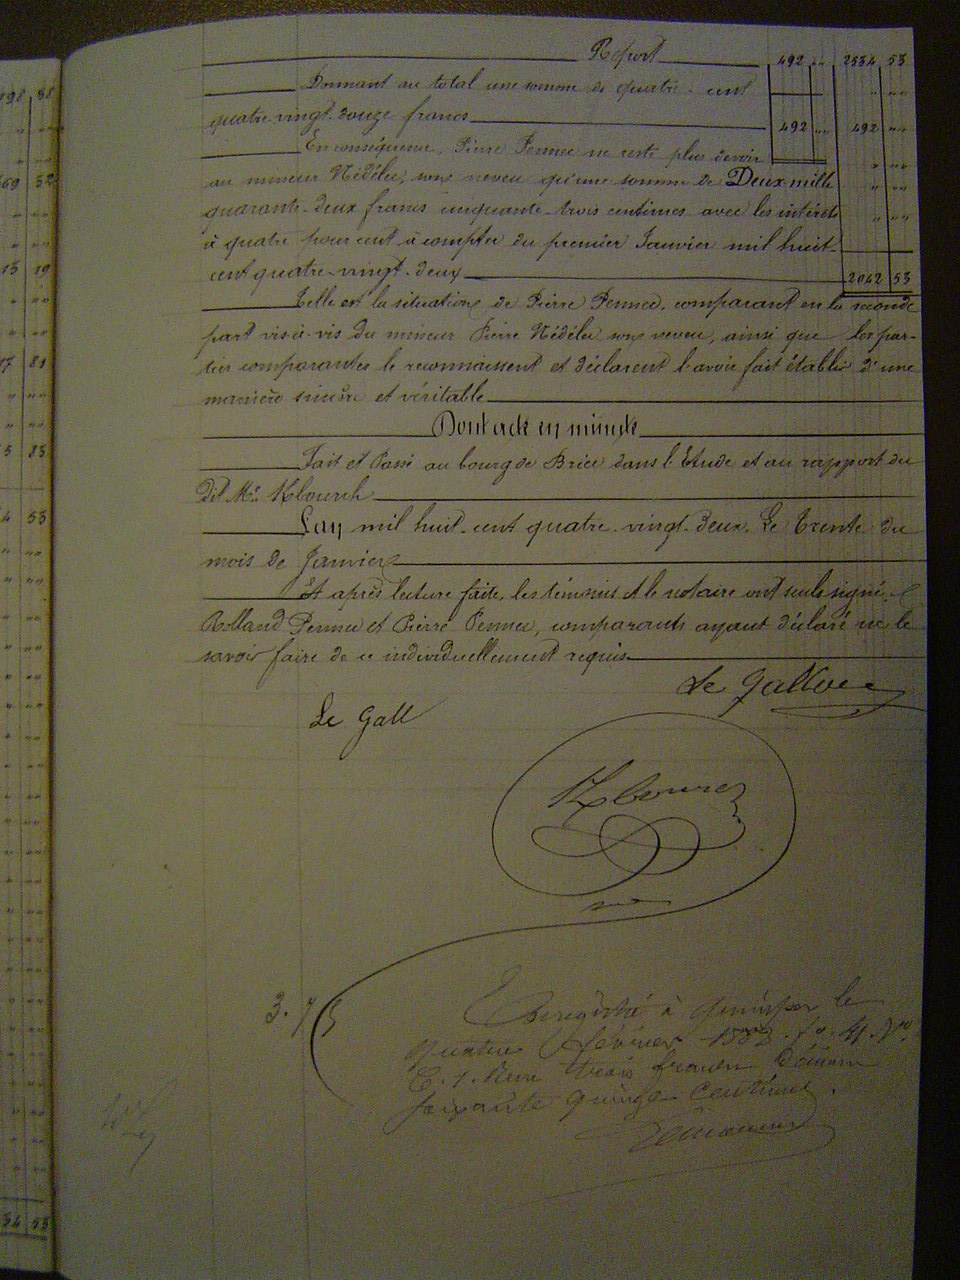 Report 492 " 2534 53
Donnant au total une somme de quatre-cent " "
quatre-vingt-douze francs 492 " 492 "
En conséquence, Pierre Pennec ne reste plus devoir " "
au mineur Nédélec, son neveu qu'une somme de Deux-mille " "
quarante-deux francs cinquante-trois centimes avec les intérêts " "
à quatre pour cent à compter du premier Janvier mil huit-
cent quatre-vingt-deux 2042 53
Telle est la situation de Pierre Pennec, comparant en la seconde
part vis-à-vis du mineur Pierre Nédélec son neveu, ainsi que les par-
ties comparantes le reconnaissent et déclarent l'avoir fait établir d'une
manière sincère et véritable
Dont acte en minute
Fait et Passé au bourg de Briec dans l'Etude et au rapport du
dit Me. Kbourch
L'an mil huit-cent quatre-vingt-deux. Le Trente du
mois de Janvier
Et après lecture faite, les témoins et le notaire ont seuls signé,
Rolland Pennec et Pierre Pennec, comparants ayant déclaré ne le
savoir faire de ce individuellement requis
Le Gall
3.75
Enregistré à Quimper le
quatre février 1882 fo. 41 Vo
C. 1. Reçu trois francs Décimes
soixante quinze centimes.